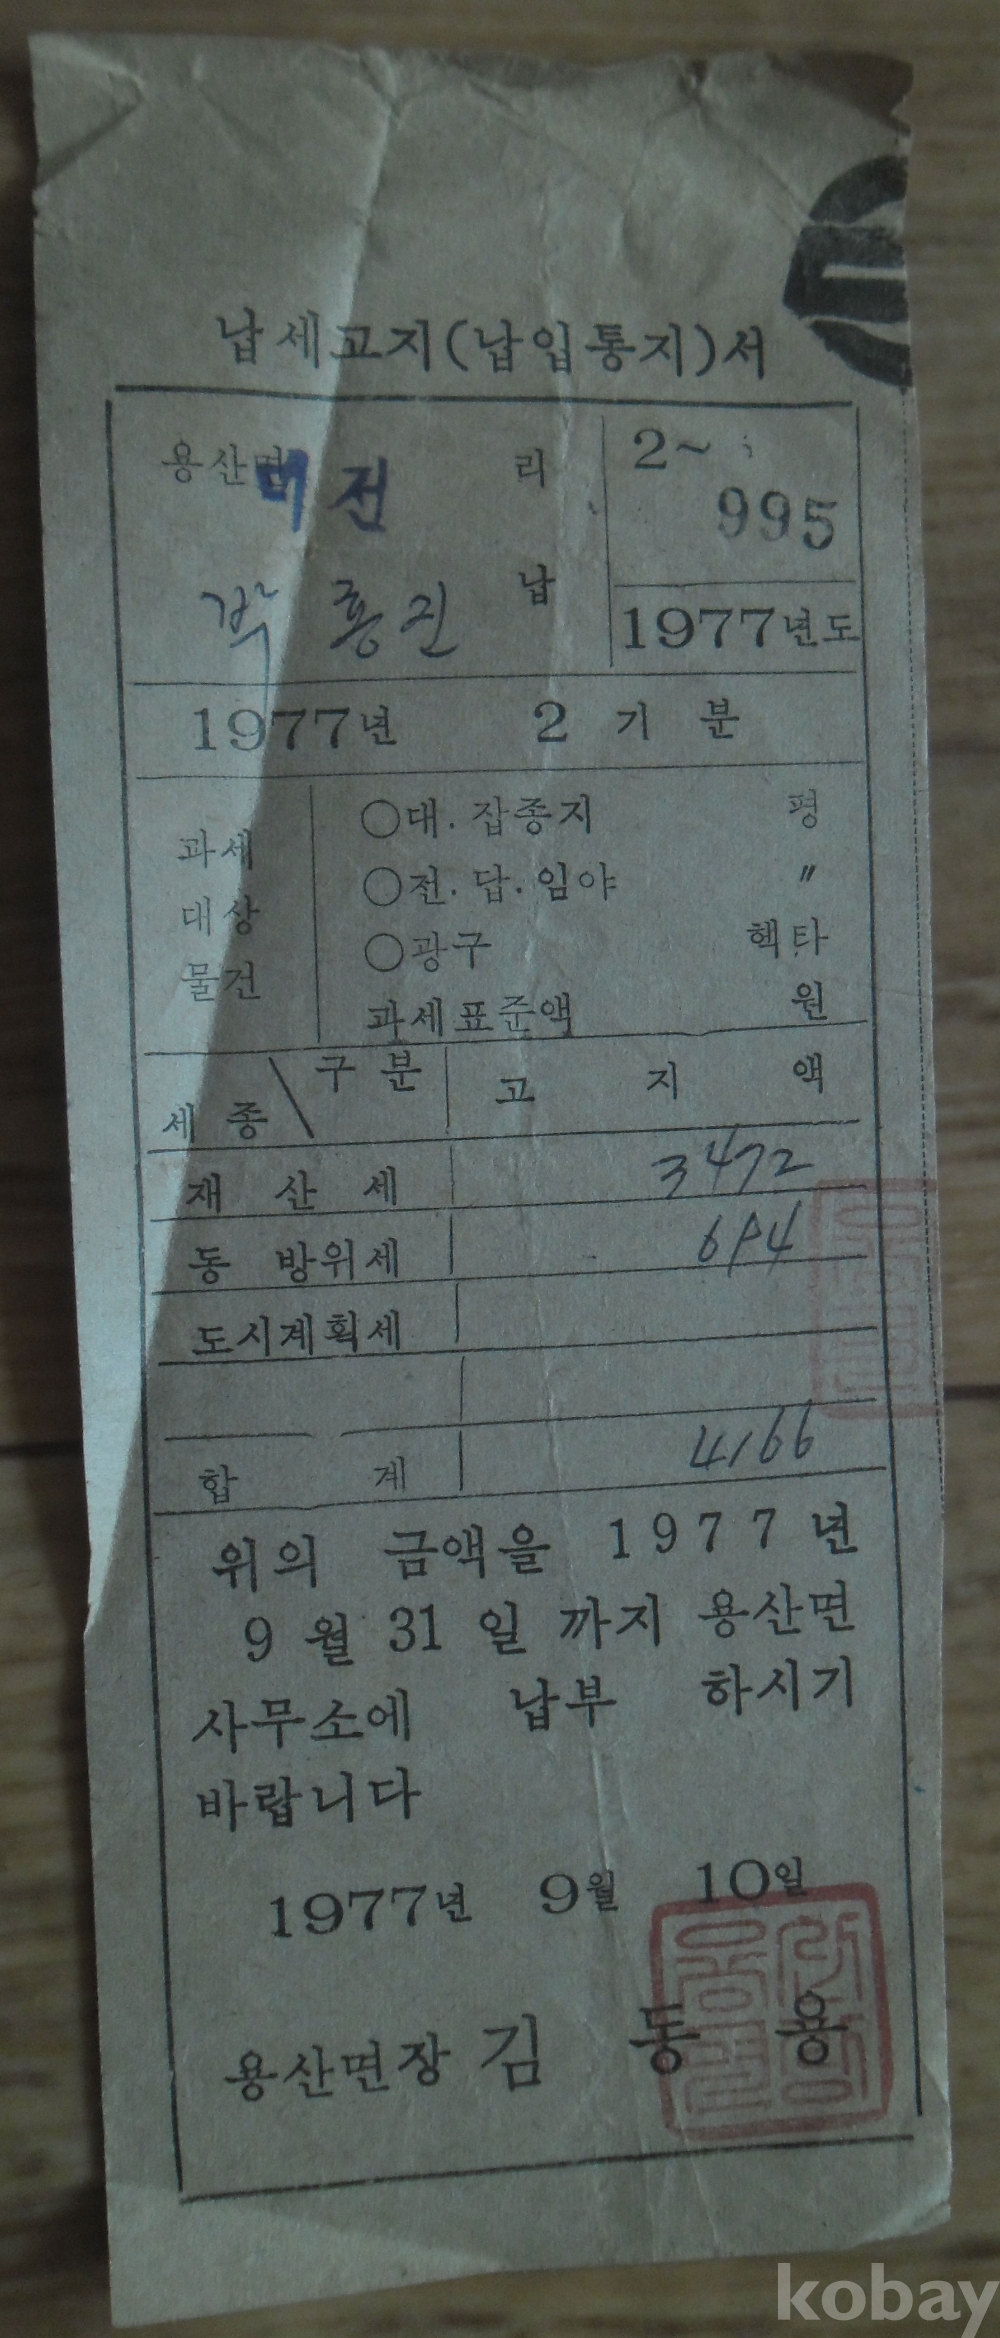 납세고지(납입통지)서
용산면 리
2~
995
박 흥진 납
1977년도
1977년 2 기 분
과세 대상 물건
○대. 잡종지 평
○전. 답. 임야 〃
○광구 헥타
과세표준액 원
세 종 \ 구 분 고 지 액
재 산 세 3472
동 방위세 694
도시계획세
합 계 4166
위의 금액을 1977년
9 월 31 일 까지 용산면
사무소에 납부 하시기
바랍니다
1977년 9월 10일
용산면장 김 동 용
kobay